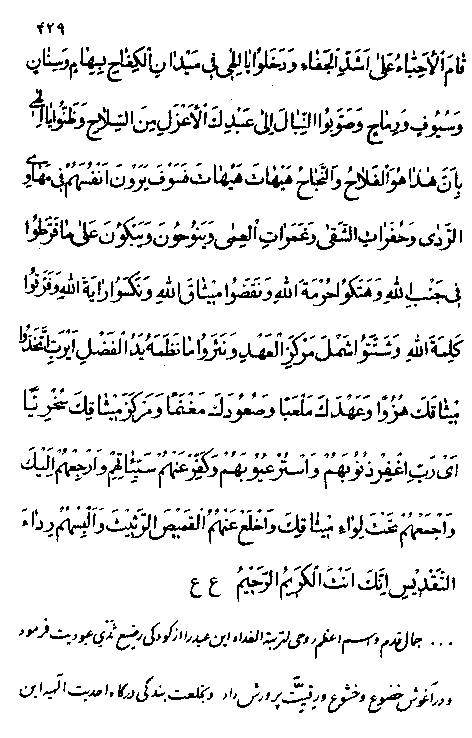 ۴۲۹
قامَ الْأحِبّاءُ عَلیٰ اَشَدِّ الْجَفاءِ وَ دَخَلُوا یا اِلٰهی فی مَیْدانِ الْکِفاحِ بِسِهامٍ وَ سِنانٍ
وَ سُیُوفٍ وَ رِماحٍ وَ صَوَّبُوا النِّبالَ اِلیٰ عَبْدِكَ الْأعْزَلِ مِنَ السِّلاحِ وَ ظَنُّوا یا اِلٰهی
بِاَنَّ هٰذا هُوَ الْفَلاحُ وَ النَّجاحُ هَیْهاتَ هَیْهاتَ فَسَوْفَ یَرَوْنَ اَنْفُسَهُمْ فی مَهاوِی
الرَّدیٰ وَ حُفَراتِ الشَّقیٰ وَ غَمَراتِ الْعَمیٰ وَ یَنُوحُونَ وَ یَبْکُونَ عَلیٰ ما فَرَّطُوا
فی جَنْبِ اللهِ وَ هَتَکُوا حُرْمَةَ اللهِ وَ نَقَضُوا میثاقَ اللهِ وَ نَکَسُوا رایَةَ اللهِ وَ فَرَّقُوا
کَلِمَةَ اللهِ وَ شَتَّتُوا شَمْلَ مَرْکَزِ الْعَهْدِ وَ نَثَرُوا ما نَظَمَهُ یَدُ الْفَضْلِ اَیْ رَبِّ اتَّخَذُوا
میثاقَكَ هُزُوًا وَ عَهْدَكَ مَلْعَبًا وَ صُعُودَكَ مَغْنَمًا وَ مَرْکَزَ میثاقِكَ سُخْرِیًّا
اَیْ رَبِّ اغْفِرْ ذُنُوبَهُمْ وَ اسْتُرْ عُیُوبَهُمْ وَ کَفِّرْ عَنْهُمْ سَیِّئاتِهِمْ وَ ارْجِعْهُمْ اِلَیْكَ
وَ اجْمَعْهُمْ تَحْتَ لِواءِ میثاقِكَ وَ اخْلَعْ عَنْهُمُ الْقَمیصَ الرَّثیثَ وَ اَلْبِسْهُمْ رِداءَ
التَّقْدیسِ اِنَّكَ اَنْتَ الْکَریمُ الرَّحیمُ ع ع
... جمال قدم و اسم اعظم روحی لتربته الفداء این عبد را از کودکی رضیع ثدی عبودیت فرمود
و در آغوش خضوع و خشوع و رقیّت پرورش داد و بخلعت بندگی درگاه احدیت الٰهیه این